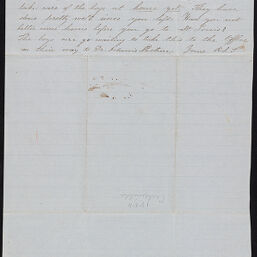 take care of the boys at home yet. They have
done pretty well since you left. Had you not
better come home before you go to St Louis?
The boys are go waiting to take this to the Office
on their way to Dr. Yours